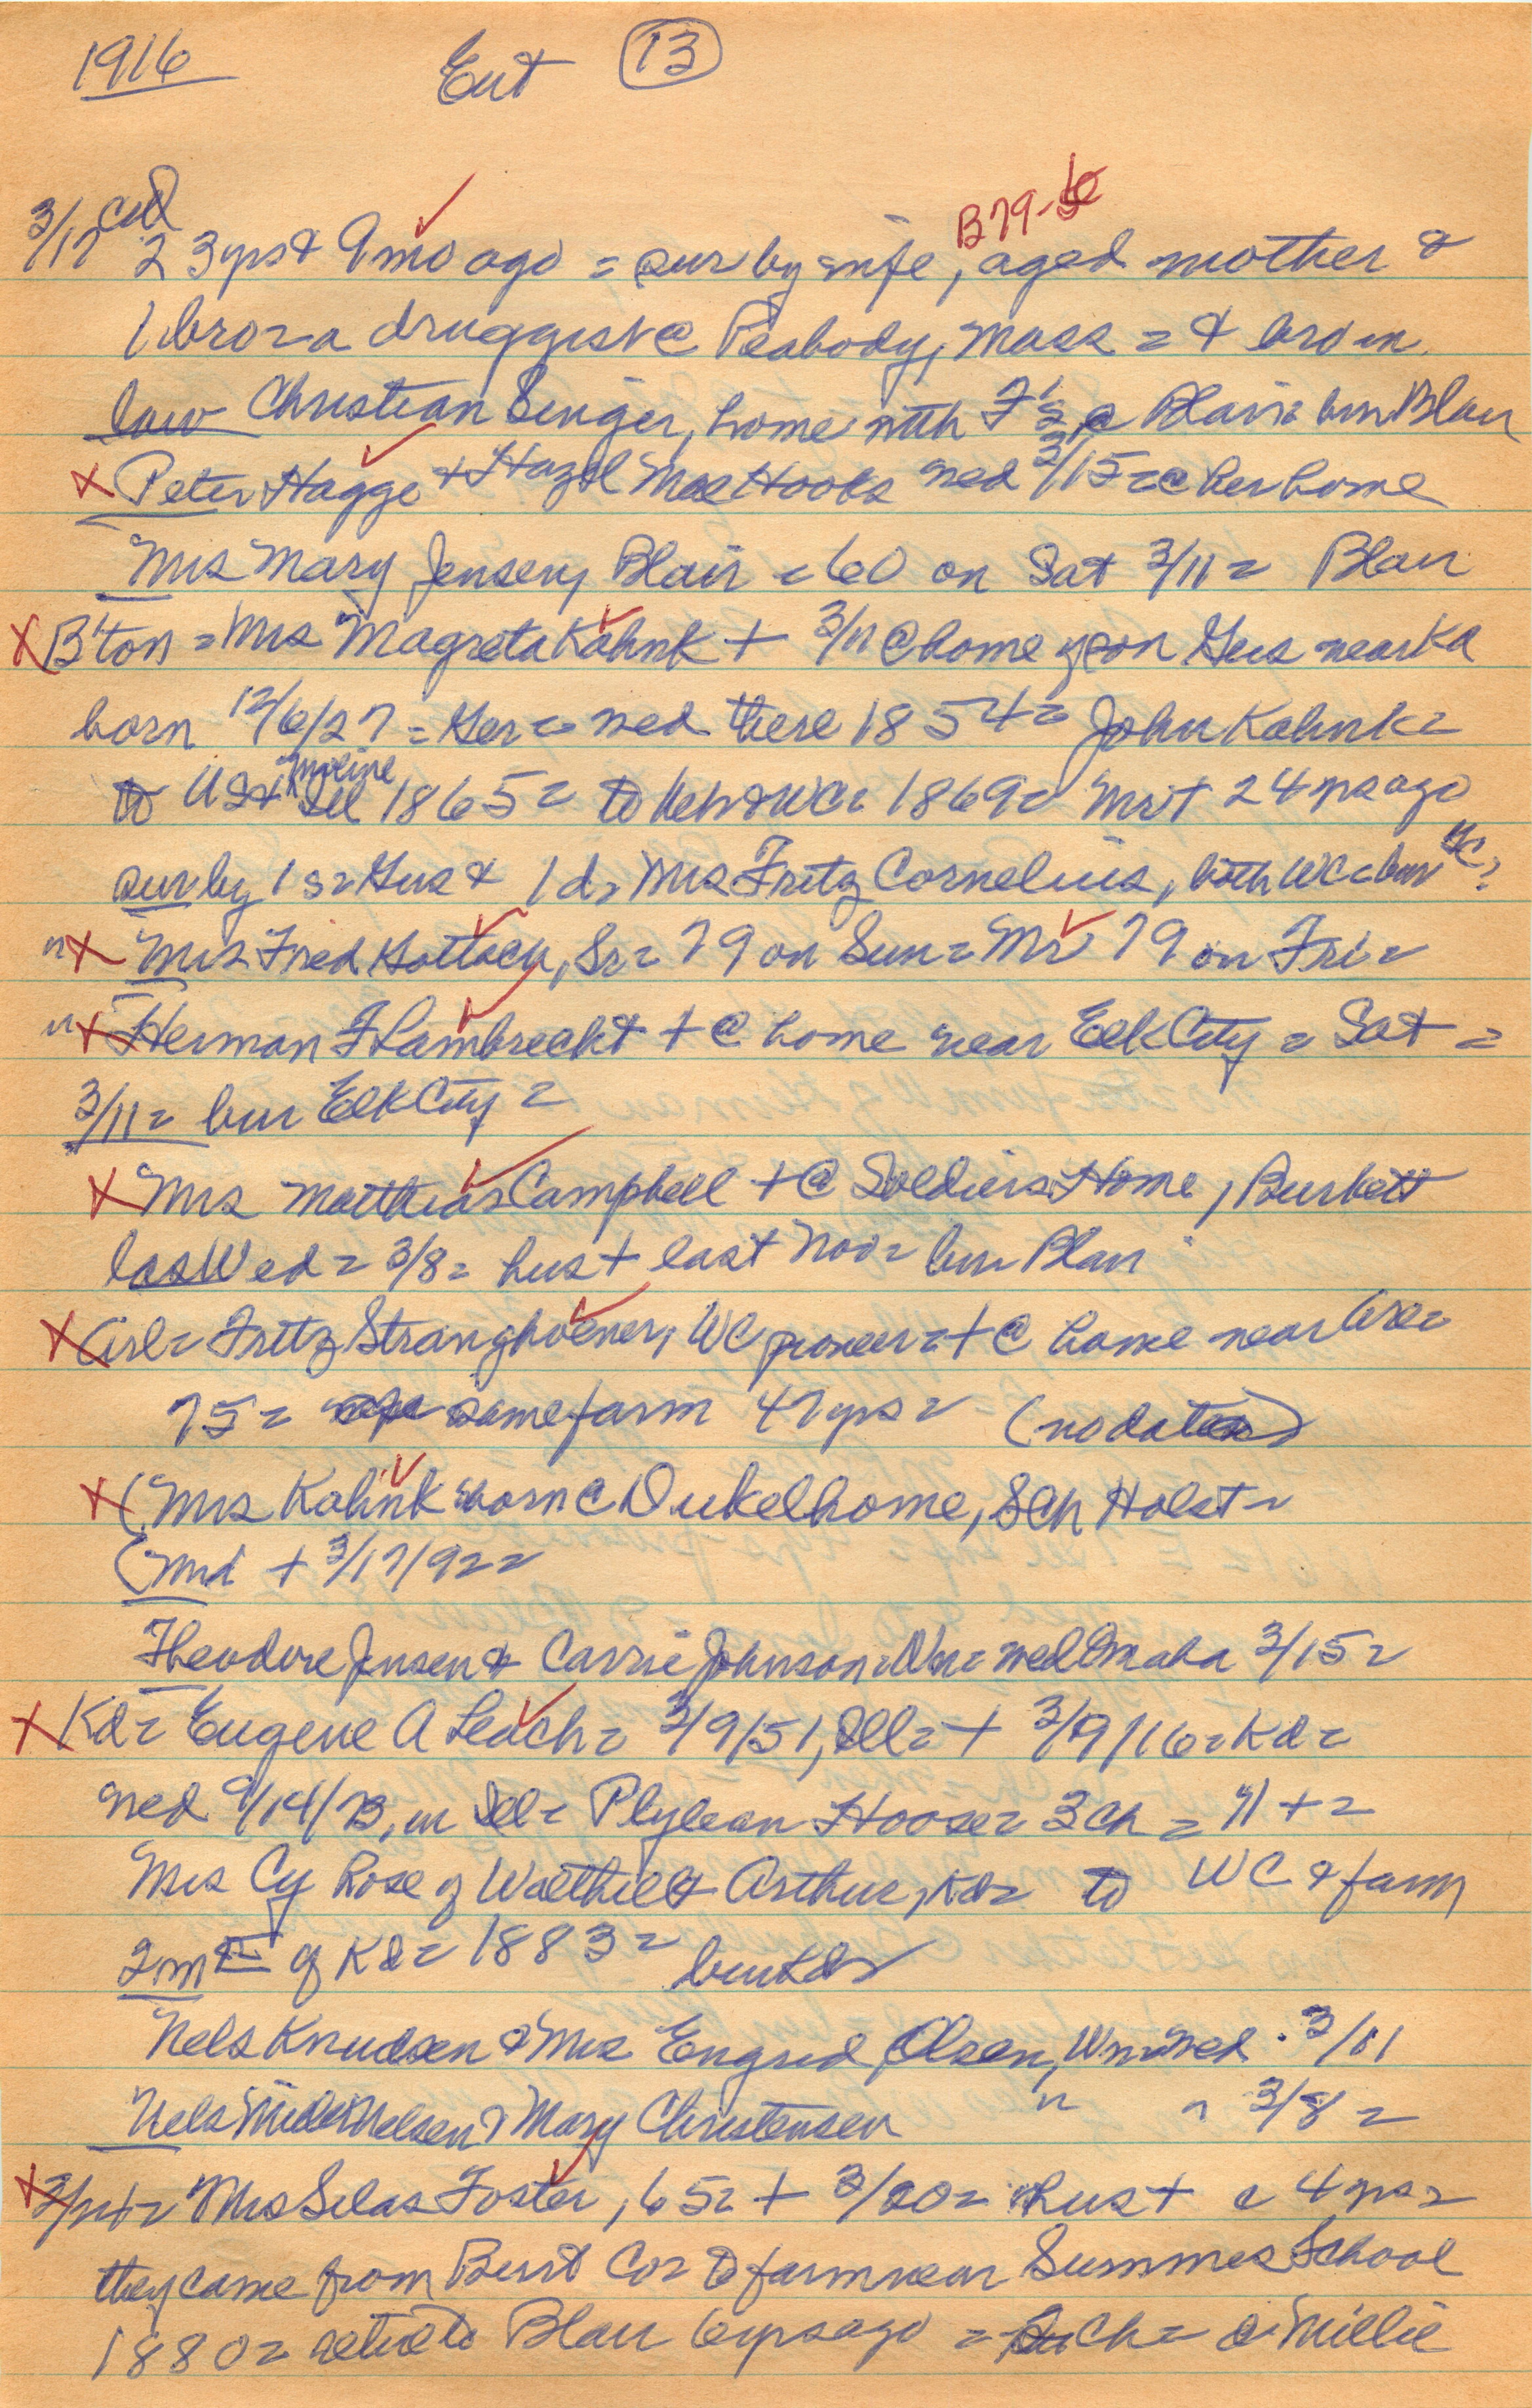 1916 Ent 13
B79-
3/17 cld 23 yrs & 9 mo ago = sur by wife, aged mother &
1 bro = a druggist @ Peabody, Mass = & bro in
law Christian Singer, home with F's @ Blair = bur Blair
X Peter Hagge + Hazel Mae Hooks wed 3/15 = @ her home
Mrs Mary Jensen, Blair = 60 on Sat 3/11 = Blair
X B'ton = Mrs Magreta Kahnk + 3/11 @ home of son Gus near Ka
born 12/6/27 = Ger = wed there 1854 = John Kahnk =
to US & Moline Ill 1865 = to Neb & WC = 1869 = Mr + 24 yrs ago
sur by 1 s = Gus & 1 d = Mrs Fritz Cornelius, both WC = bur KC?
X Mrs Fred Gottsch, Sr = 79 on Sun = Mr 79 on Fri =
X Herman F Lambrecht + @ home near Elk City = Sat =
3/11 = bur Elk City =
X Mrs Matthias Campbell + @ Soldiers Home, Burkett
last Wed = 3/8 = hus + last Nov = bur Blair
X Arl = Fritz Stranghoener, WC pioneer = + @ home near Arl =
75 = same farm 47 yrs = (no dates)
X (Mrs Kahnk born @ Dukelhome, Sch Holst =
(Mr + 3/17/92 =
Theodore Jensen & Carrie Johnson = Om = wed Omaha 3/15 =
X Kd = Eugene A Leach = 3/9/51, Ill = + 3/9/16 = Kd =
wed 9/14/73, in Ill = Hooser 3 ch = 1 + =
Mrs Cy Rose of Walthill & Arthur, Kd = to WC & farm
2 m E of Kd = 1883 = bur Kd =
Nels Knudsen & Mrs Engred Olsen, Wn = wed 3/11
Nels Nelsen & Mary Christensen " " 3/8 =
X Mrs Selas Foster, 65 = + 3/20 = hus + c 4 yrs =
they came from Burt Co = to farm near Summes School
1880 = retired to Blair 6 yrs ago = ch = d = Millie